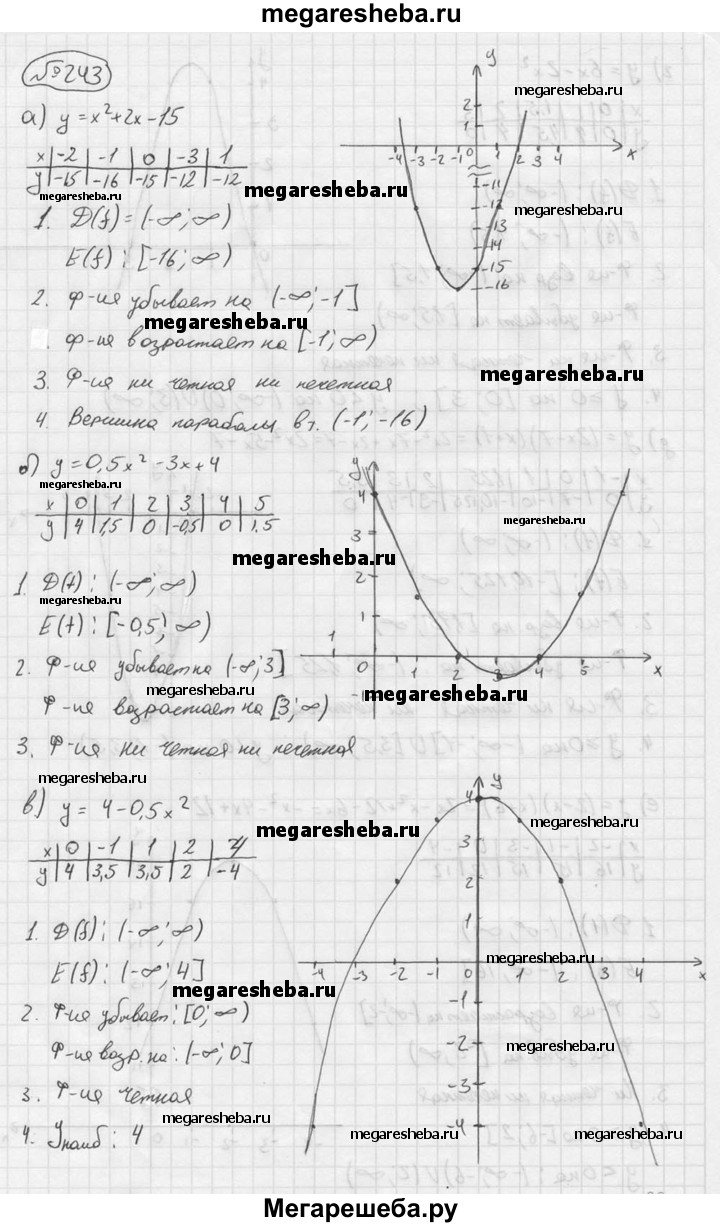 megaresheba.ru
№243
а) y = x² + 2x - 15
x | -2 | -1 | 0 | -3 | 1
y | -15 | -16 | -15 | -12 | -12
megaresheba.ru
1. D(f) = (-∞; ∞)
E(f): [-16; ∞)
2. Ф-ия убывает на (-∞; -1]
megaresheba.ru
ф-ия возрастает на [-1; ∞)
3. Ф-ия ни четная ни нечетная
4. Вершина параболы в т. (-1; -16)
y
megaresheba.ru
2
1
-4 -3 -2 -1 0 1 2 3 4 x
megaresheba.ru
megaresheba.ru
-11
-12
megaresheba.ru
-13
-14
-15
-16
megaresheba.ru
б) y = 0,5x² - 3x + 4
megaresheba.ru
x | 0 | 1 | 2 | 3 | 4 | 5
y | 4 | 1,5 | 0 | -0,5 | 0 | 1,5
megaresheba.ru
1. D(f): (-∞; ∞)
megaresheba.ru
E(f): [-0,5; ∞)
2. Ф-ия убывает на (-∞; 3]
megaresheba.ru
Ф-ия возрастает на [3; ∞)
3. Ф-ия ни четная ни нечетная
megaresheba.ru
y
4
megaresheba.ru
3
2
1
1 0 1 2 3 4 5 x
megaresheba.ru
-1
в) y = 4 - 0,5x²
megaresheba.ru
x | 0 | -1 | 1 | 2 | 4
y | 4 | 3,5 | 3,5 | 2 | -4
1. D(f): (-∞; ∞)
E(f): (-∞; 4]
megaresheba.ru
2. Ф-ия убывает: [0; ∞)
Ф-ия возр. на: (-∞; 0]
3. Ф-ия четная
megaresheba.ru
4. yнаиб: 4
y
megaresheba.ru
4
3
megaresheba.ru
2
1
megaresheba.ru
-4 -3 -2 -1 0 1 2 3 4 x
-1
-2
megaresheba.ru
-3
-4
megaresheba.ru
megaresheba.ru
Мегарешеба.ру